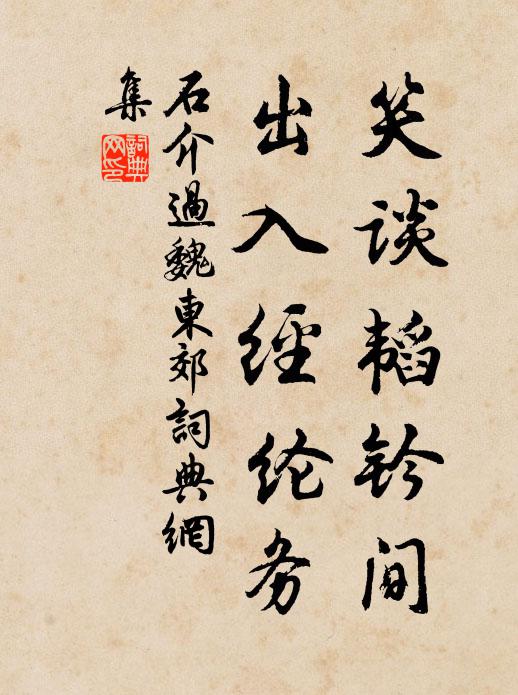 笑谈韬钤间
出入經纶务
石介過魏東郊詞典網
集
詞典网印